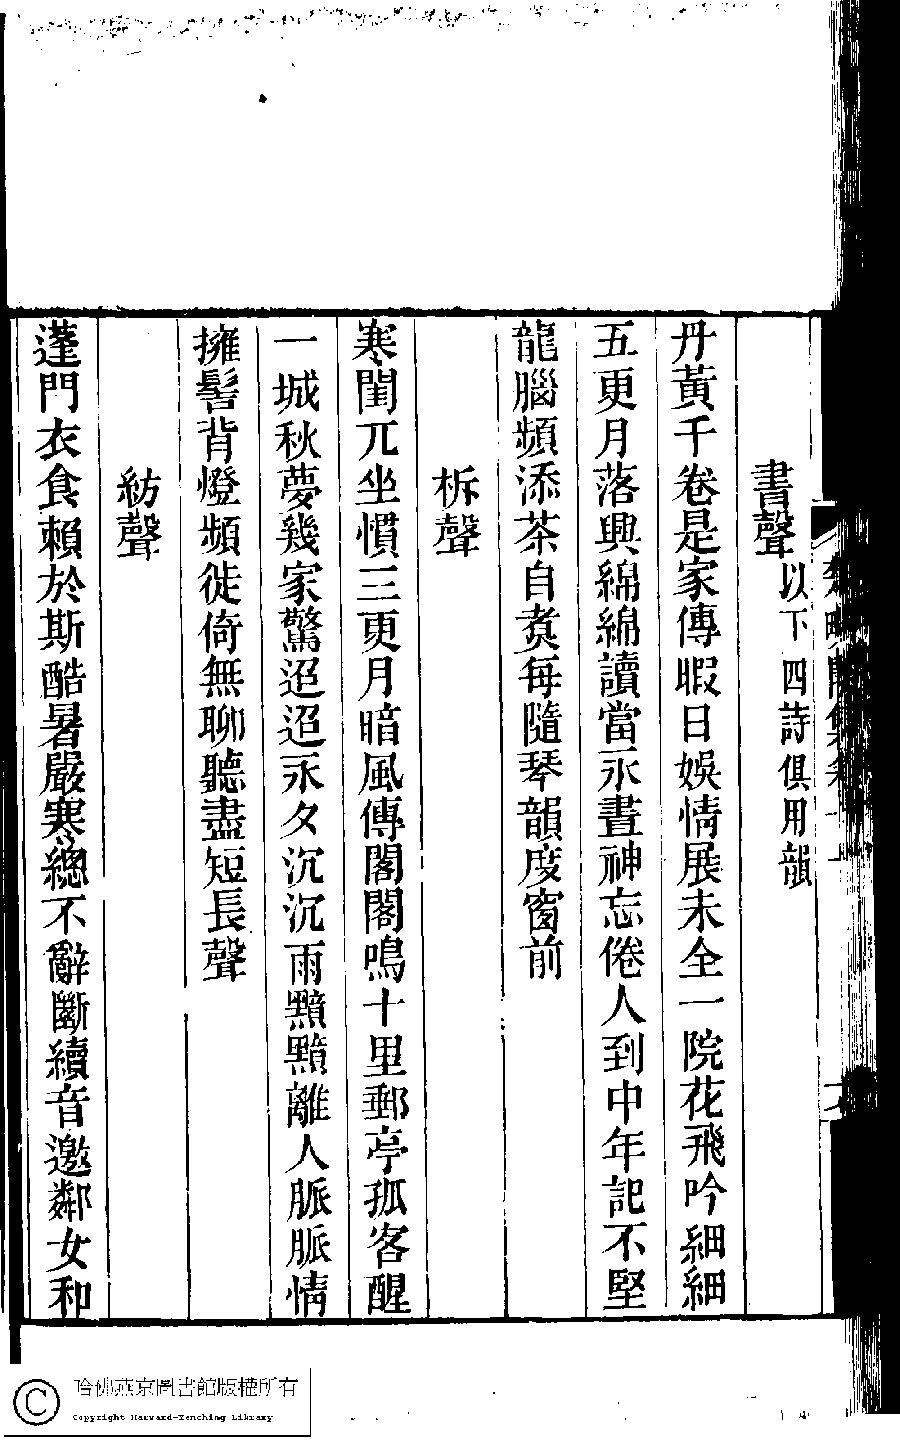 書聲以下四詩俱用韻
丹黃千卷是家傳暇日娛情展未全一院花飛吟細細
五更月落興綿綿讀當永晝神忘倦人到中年記不堅
龍腦頻添茶自煑每隨琴韻度窗前
柝聲
寒閨兀坐慣三更月暗風傳閣閣鳴十里郵亭孤客醒
一城秋夢幾家驚迢迢永夕沉沉雨黯黯離人脈脈情
擁髻背燈頻徙倚無聊聽盡短長聲
紡聲
蓬門衣食賴於斯酷暑嚴寒總不辭斷續音邀鄰女和
哈佛燕京圖書館版權所有
Copyright Harvard-Yenching Library